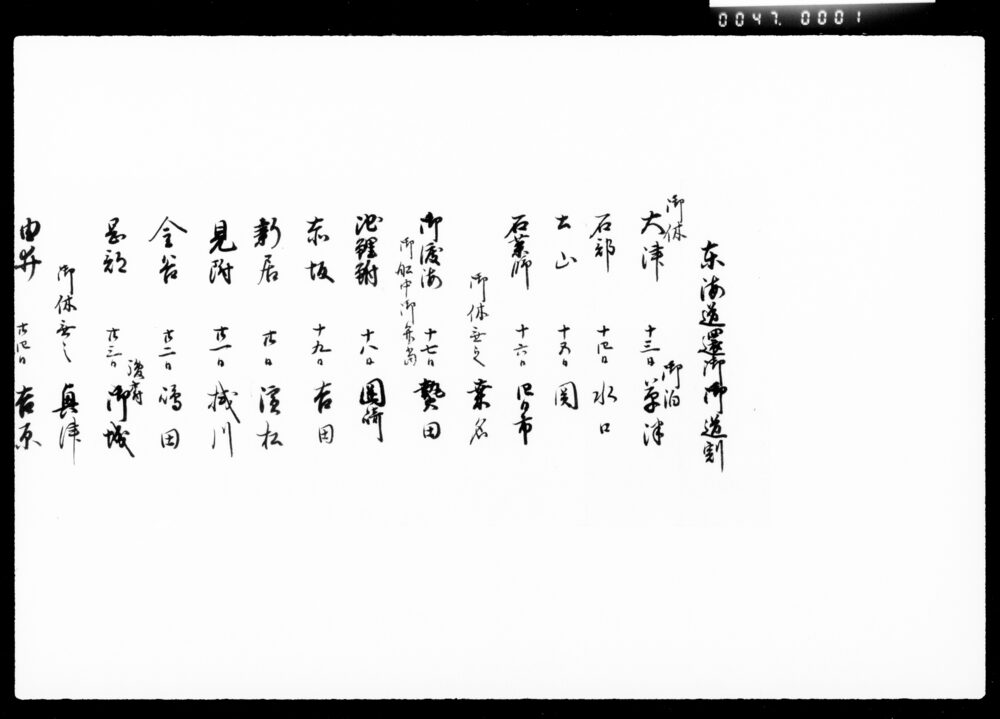 0047. 0001
東海道還御御道割
御休 御泊
大津 十三日 草津
石部 十四日 水口
土山 十五日 関
石薬師 十六日 四日市
御休無之 桑名
御渡海 十七日 熱田
御船中御弁当
池鯉鮒 十八日 岡崎
赤坂 十九日 吉田
新居 廿日 浜松
見附 廿一日 掛川
金谷 廿二日 嶋田
岡部 廿三日 駿府 御城
御休無之 奥津
由井 廿四日 吉原